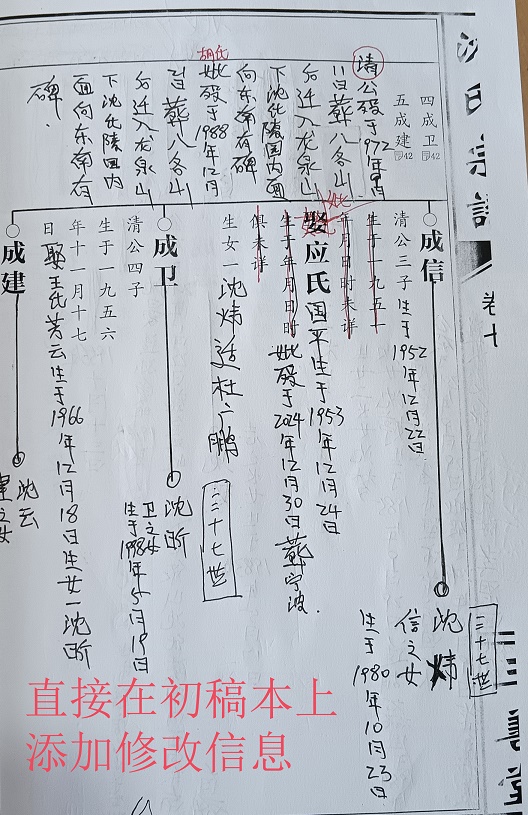 沈氏宗譜
卷十
三善堂
四成卫 42
五成建 42
清公殁于1972年9月
11日葬八各山
后迁入龙泉山
下沈氏陵园内面
向东南有碑
胡氏
妣殁于1988年12月
2日葬八各山
后迁入龙泉山
下沈氏陵园内
面向东南有
碑.
成信
清公三子生于1952年12月22日
生于一九五一
年月日时未详
妣
娶应氏国平生于1953年12月24日
生于年月日时妣殁于2024年12月30日葬宁波.
俱未详
生女一沈炜适杜广鹏
三十七世
沈炜
信之女
生于1980年10月23日
成卫
清公四子
生于一九五六
年十一月十七
日娶王氏芳云生于1966年12月18日生女一沈昕
三十七世
沈昕
卫之女
生于1998年5月19日
成建
沈云
建之女
直接在初稿本上
添加修改信息